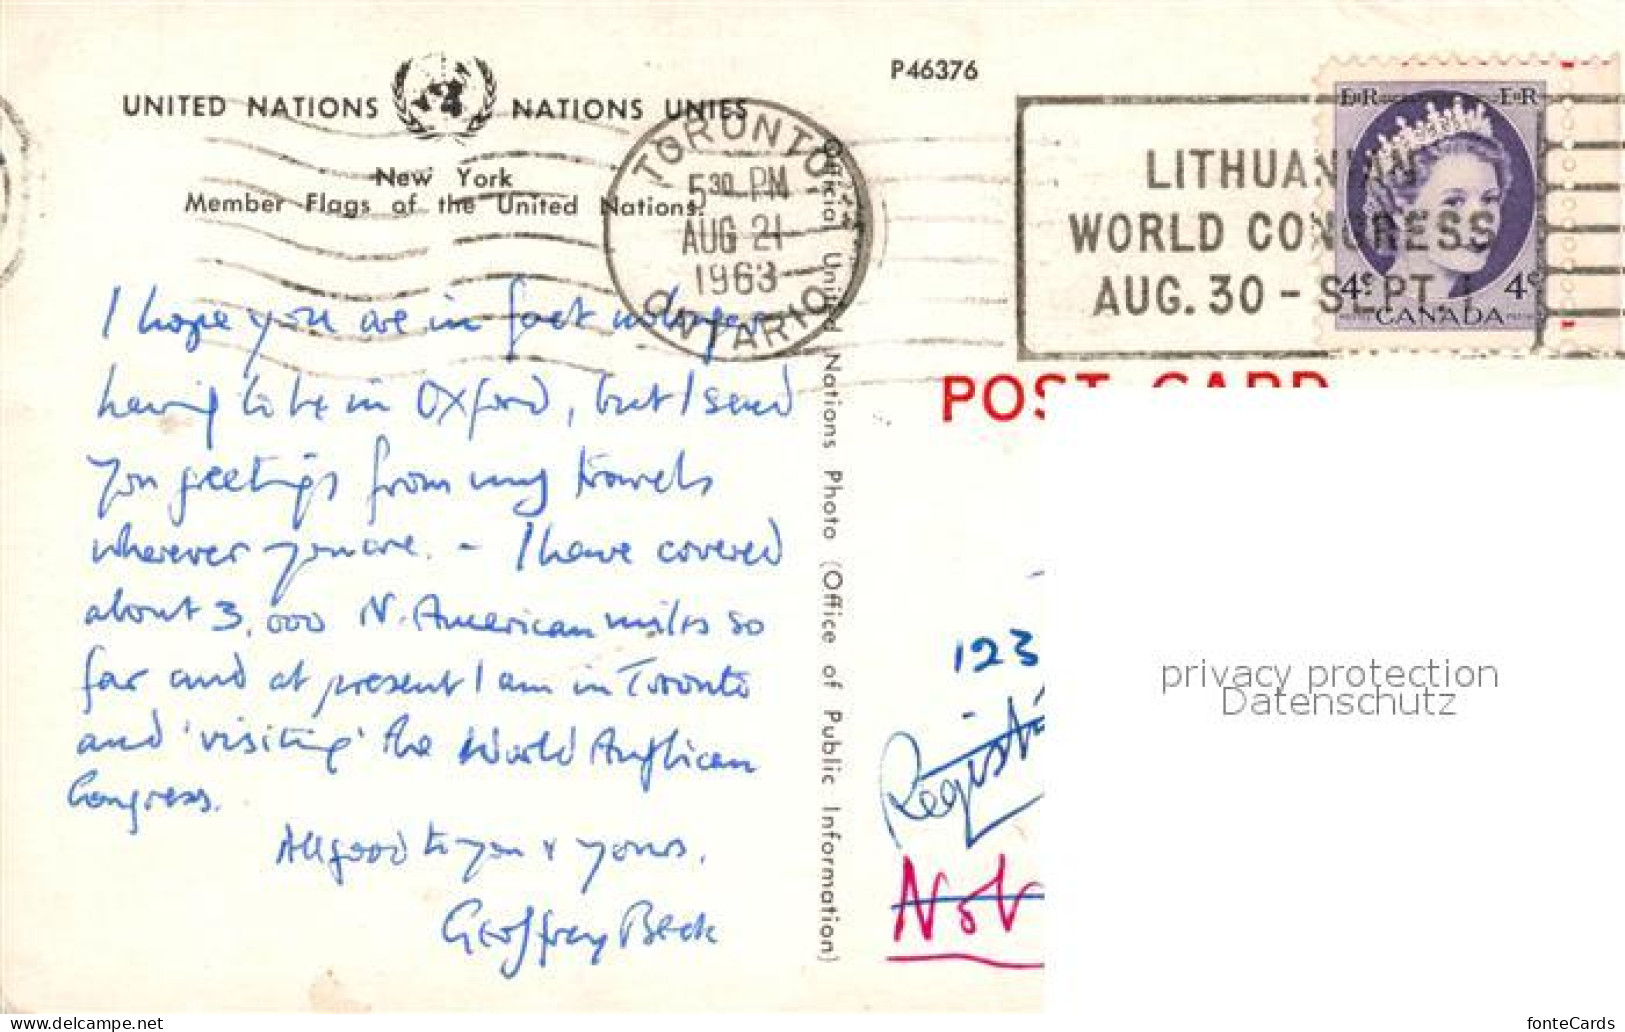 P46376
UNITED NATIONS NATIONS UNIES
New York
Member Flags of the United Nations.
TORONTO
5 30 PM
AUG 21
1963
ONTARIO
LITHUANIAN
WORLD CONGRESS
AUG. 30 - SEPT. 1
E R E R
4¢ 4¢
CANADA
POST CARD
Official United Nations Photo (Office of Public Information)
I hope you are in fact no longer
having to be in Oxford, but I send
you greetings from my travels
wherever you are. - I have covered
about 3,000 N. American miles so
far and at present I am in Toronto
and 'visiting' the World Anglican
Congress.
All good to you & yours.
Geoffrey Beck
123
Not
privacy protection
Datenschutz
www.delcampe.net
fonteCards